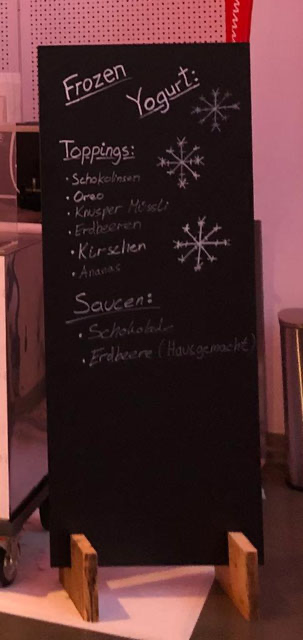 Frozen
Yogurt:
Toppings:
• Schokolinsen
• Oreo
• Knusper Müssli
• Erdbeeren
• Kirschen
• Ananas
Saucen:
• Schokolade
• Erdbeere (Hausgemacht)